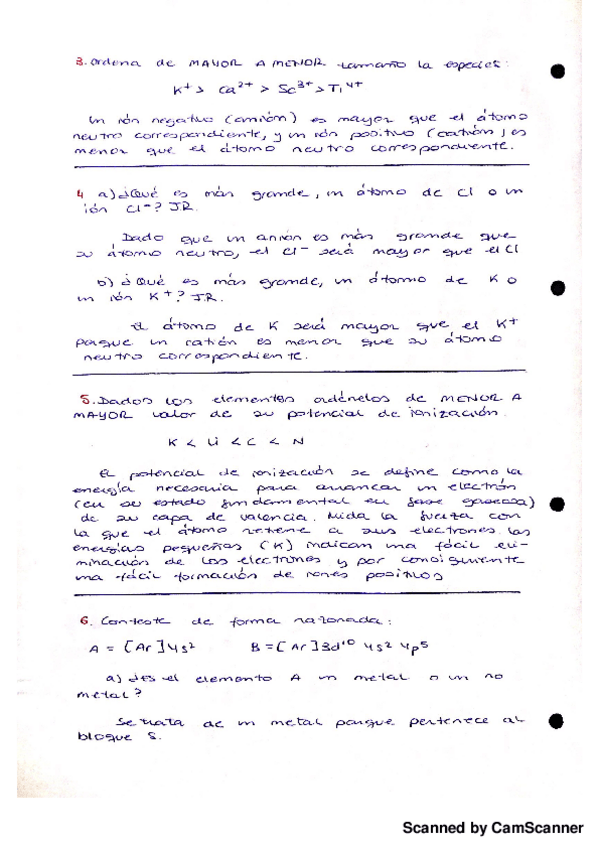 3. Ordena de MAYOR A MENOR tamaño la especies:
K⁺ > Ca²⁺ > Sc³⁺ > Ti⁴⁺
Un ión negativo (anión) es mayor que el átomo
neutro correspondiente, y un ión positivo (catión) es
menor que el átomo neutro correspondiente.
4 a) ¿Qué es más grande, un átomo de Cl o un
ión Cl⁻? J.R.
Dado que un anión es más grande que
su átomo neutro, el Cl⁻ será mayor que el Cl
b) ¿Qué es más grande, un átomo de K o
un ión K⁺? J.R.
El átomo de K será mayor que el K⁺
porque un catión es menor que su átomo
neutro correspondiente.
5. Dados los elementos ordénelos de MENOR A
MAYOR valor de su potencial de ionización.
K < Li < C < N
El potencial de ionización se define como la
energía necesaria para arrancar un electrón
(en su estado fundamental en fase gaseosa)
de su capa de valencia. Mida la fuerza con
la que el átomo retiene a sus electrones. Las
energías pequeñas (K) indican una fácil eli-
minación de los electrones y por consiguiente
una fácil formación de iones positivos
6. Conteste de forma razonada:
A = [Ar] 4s² B = [Ar] 3d¹⁰ 4s² 4p⁵
a) ¿es el elemento A un metal o un no
metal?
Se trata de un metal porque pertenece al
bloque S.
Scanned by CamScanner